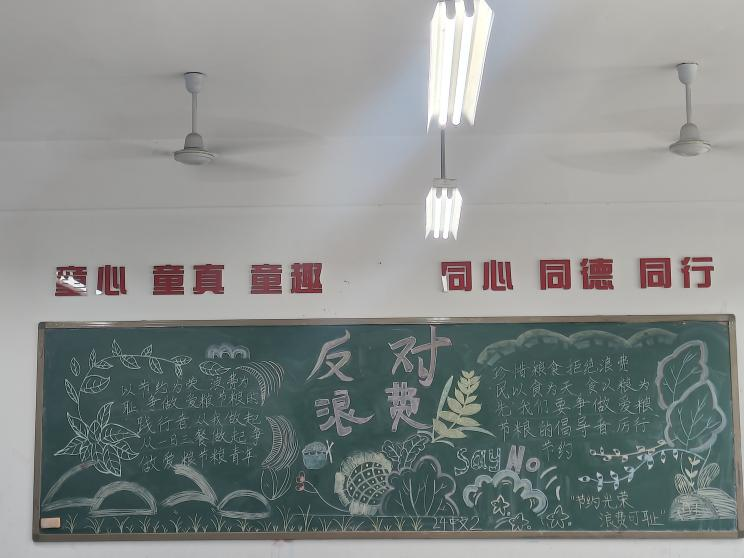 童心 童真 童趣
同心 同德 同行
反对
浪费
以节约为荣 浪费为
耻 争做爱粮节粮的
践行者 从我做起
从一日三餐做起 争
做爱粮节粮青年
珍惜粮食拒绝浪费
民以食为天 食以粮为
先 我们要争做爱粮
节粮的倡导者 厉行
节约
say No
"节约光荣
浪费可耻"